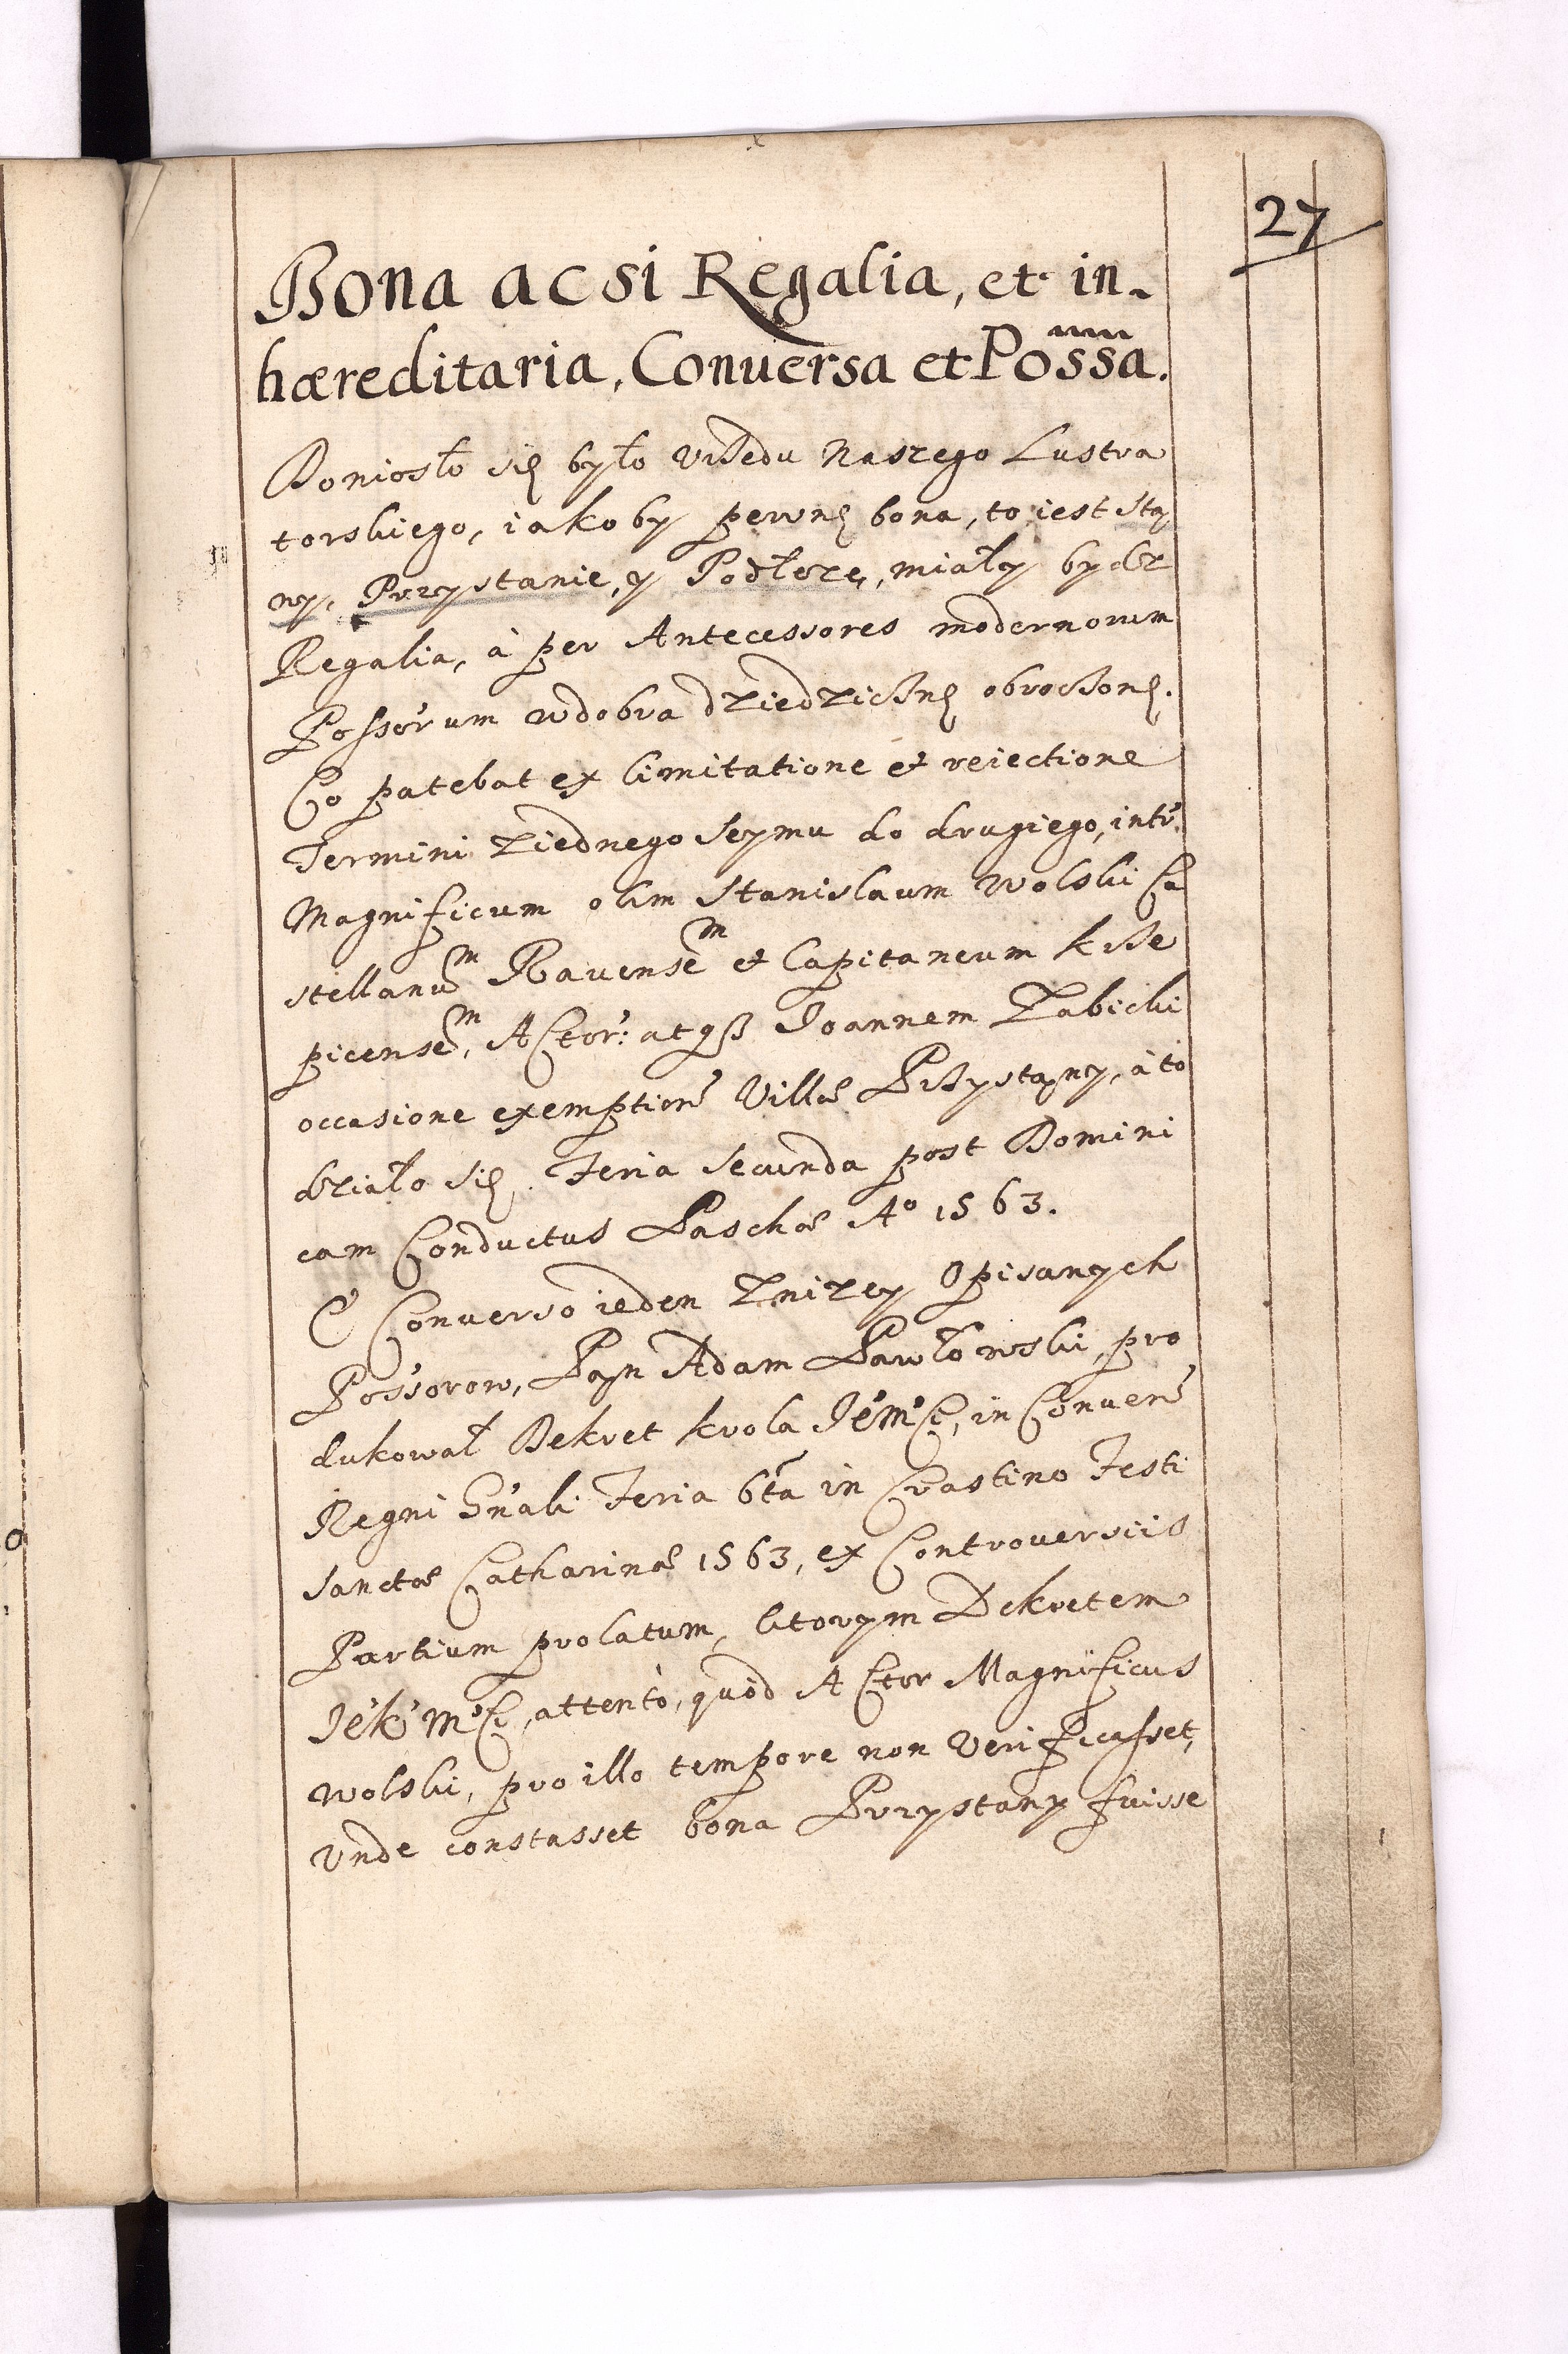 27
Bona ac si Regalia, et in-
hæreditaria, Conuersa et Possa.
Doniosło się było Vrzędu Naszego Lustra
torskiego, iakoby pewnę bona, to iest Sta
ny, Przystanie, y Podłęze, miały bydz
Regalia, à per Antecessores modernorum
Possorum w dobra dziedzicznę obroczonę.
Co patebat ex limitatione et reiectione
Termini z iednego Seymu do drugiego, intr:
Magnificum olim Stanislaum Wolski Ca
stellanum Rauensem et Capitaneum krze
picensem, ACtor: atqȝ Joannem Zabicki
occasione exemption Villæ Przystayny, à to
działo się Feria Secunda post Domini
cam Conductus Paschæ Aº 1563.
E Conuerso ieden z nizey Opisanych
Possorow, Pan Adam Pawłowski, pro
dukował Dekret krola JeoMCi, in Conuen
Regni Gnali Feria 6ta in Crastino Festi
Sanctæ Catharinæ 1563, ex Controuersiis
Partium prolatum, ktorym Dekretem
JeK MCi, attento, quòd ACtor Magnificus
Wolski, pro illo tempore non Verificasset,
Vnde constasset bona Przystany fuisse